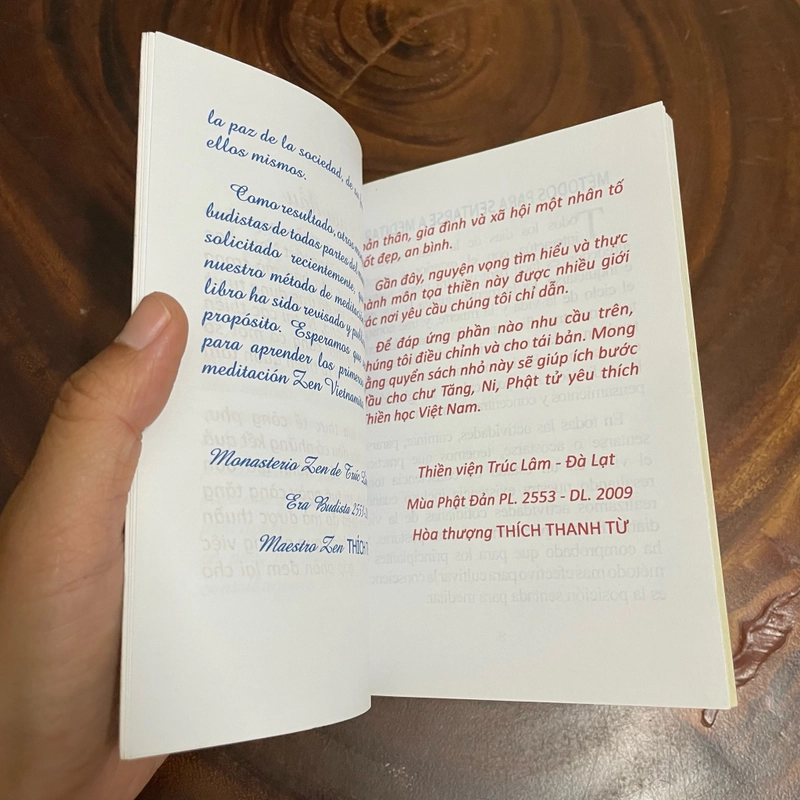 la paz de la sociedad, de
ellos mismos.
Como resultado, otros
budistas de todas partes del
solicitado recientemente,
nuestro método de meditación
libro ha sido revisado y
propósito. Esperamos que
para aprender los primeros
meditación Zen Vietnamita
Monasterio Zen de Trúc
Era Budista 2553
Maestro Zen THÍCH
thân, gia đình và xã hội một nhân tố
tốt đẹp, an bình.
Gần đây, nguyện vọng tìm hiểu và thực
hành môn tọa thiền này được nhiều giới
các nơi yêu cầu chúng tôi chỉ dẫn.
Để đáp ứng phần nào nhu cầu trên,
chúng tôi điều chỉnh và cho tái bản. Mong
rằng quyển sách nhỏ này sẽ giúp ích bước
đầu cho chư Tăng, Ni, Phật tử yêu thích
Thiền học Việt Nam.
Thiền viện Trúc Lâm - Đà Lạt
Mùa Phật Đản PL. 2553 - DL. 2009
Hòa thượng THÍCH THANH TỪ